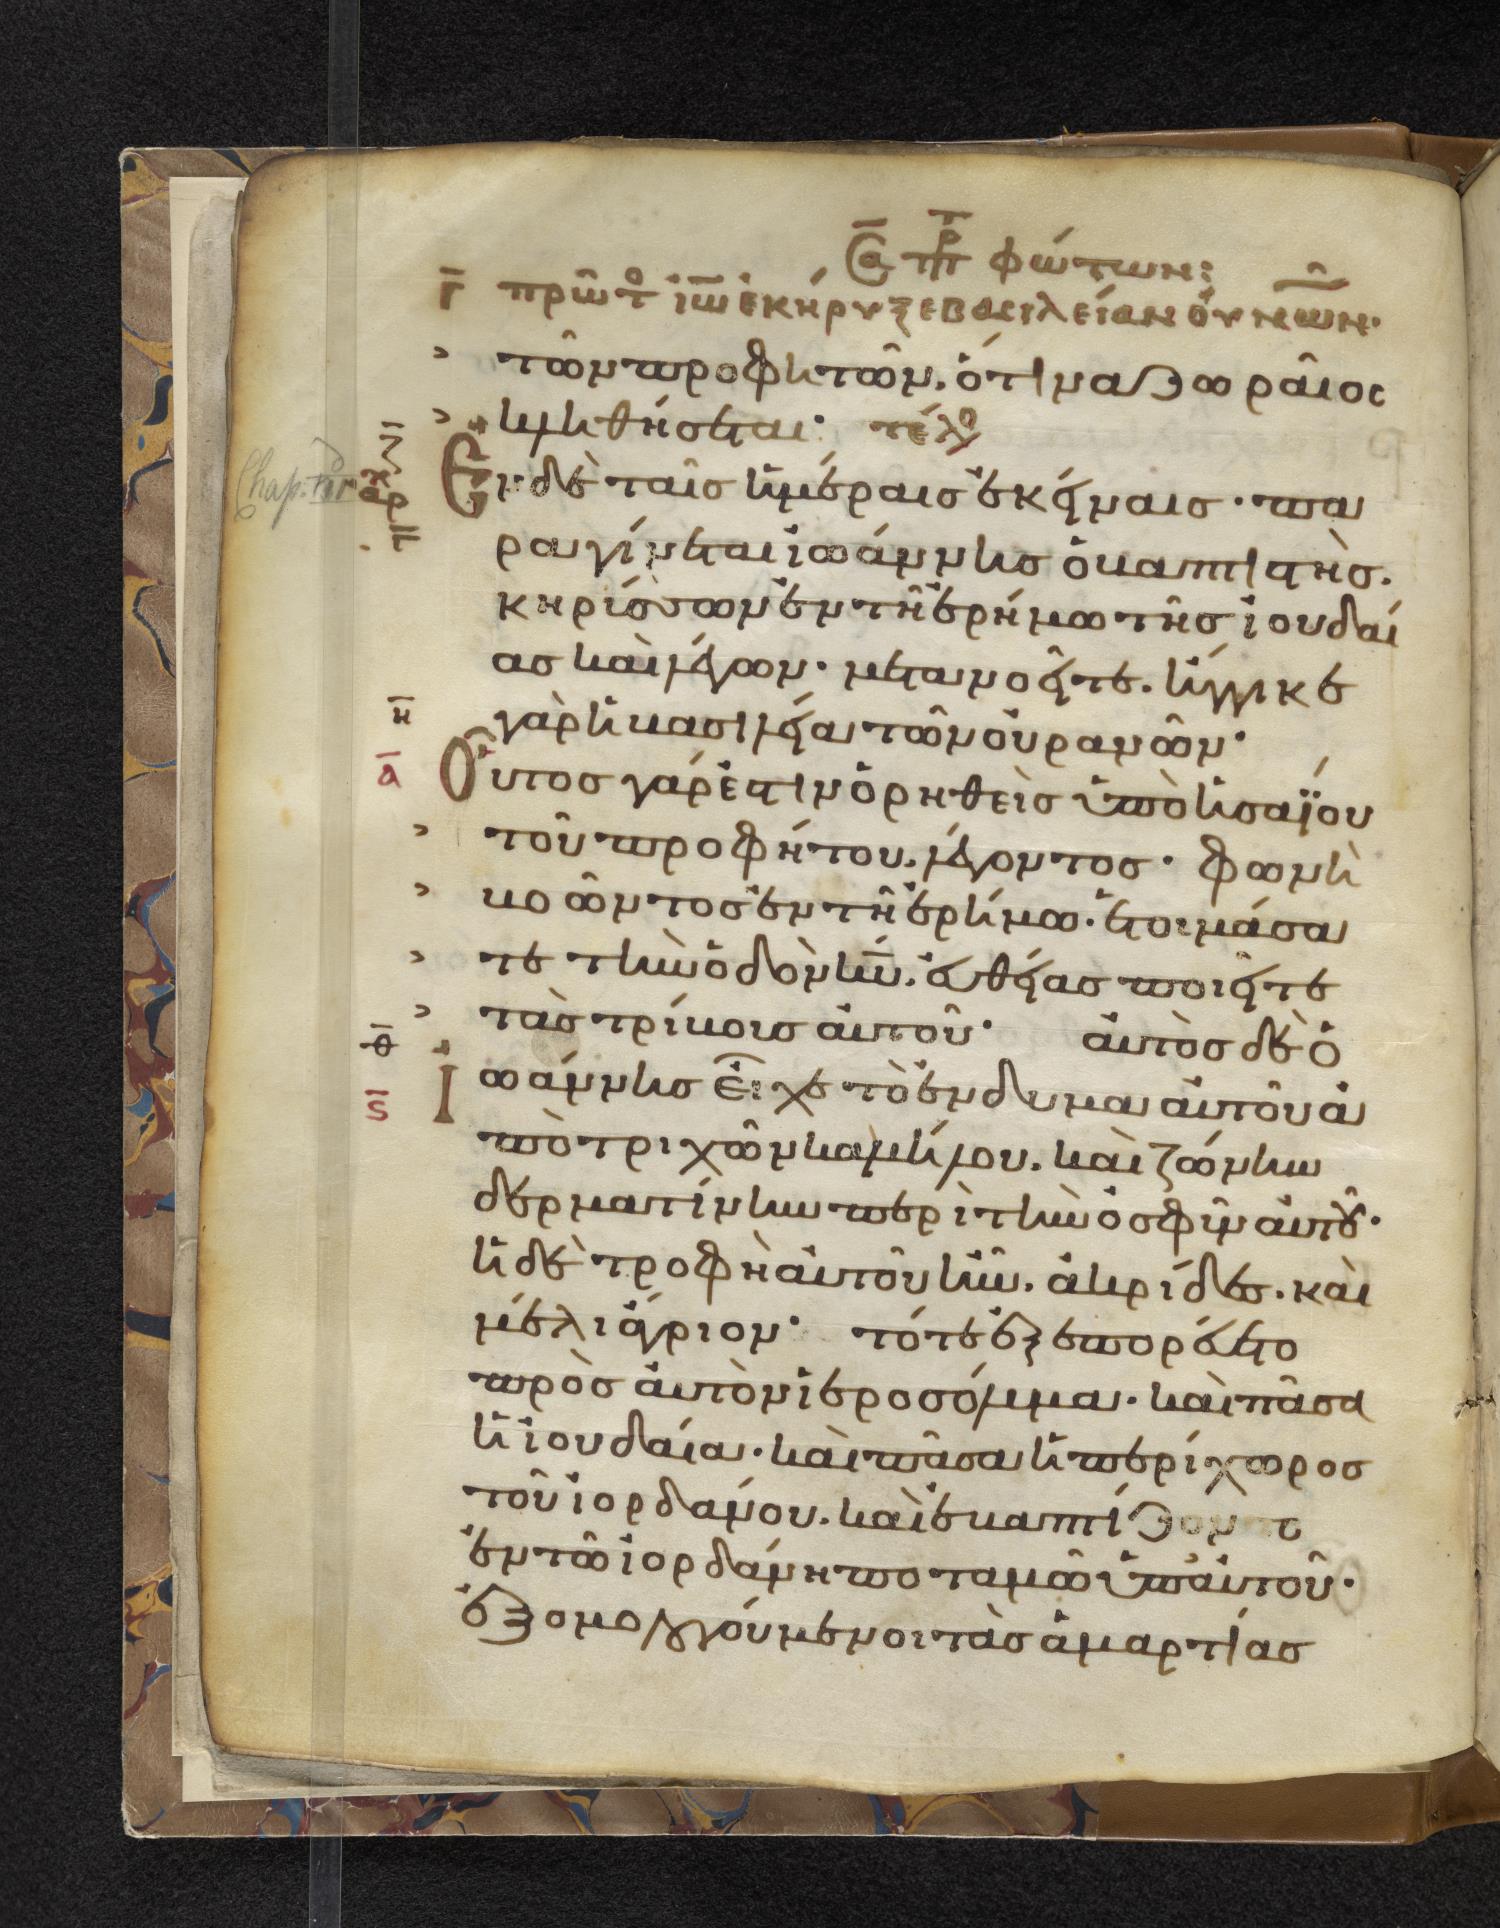 φώτων:
γ̄ πρῶτ ἰω̄ ἐκήρυξε βασιλείαν οὐνῶν·
τῶν προφητῶν. ὅτι ναζωραῖος
κληθήσεται· τέλο
Chap. III
Ἐν δὲ ταῖς ἡμέραις ἐκείναις· πα
ραγίνεται ἰωάννης ὁ βαπτιστὴς.
κηρίσσων ἐν τῆ ἐρήμω τῆς ἰουδαί
ας καὶ λέγων· μετανοεῖτε. ἤγγικε
η̄ γὰρ ἡ βασιλεία τῶν οὐρανῶν·
ᾱ Οὗτος γάρ ἐστιν ὁ ῥηθεὶς ὑπὸ ἡσαΐου
τοῦ προφήτου. λέγοντος· φωνὴ
βοῶντος ἐν τῆ ἐρήμω. ἑτοιμάσα
τε τὴν ὁδὸν κῡ. εὐθείας ποιεῖτε
τὰς τρίβους αὐτοῦ· αὐτὸς δὲ ὁ
θ̄
ς̄ Ἰωάννης εἶχε τὸ ἔνδυμα αὐτοῦ ἀ
πὸ τριχῶν καμήλου. καὶ ζώνην
δερματίνην περὶ τὴν ὀσφὺν αὐτοῦ·
ἡ δὲ τροφὴ αὐτοῦ ἦν. ἀκρίδες. καὶ
μέλι ἄγριον· τότε ἐξεπορεύετο
πρὸς αὐτὸν ἱεροσόλυμα. καὶ πᾶσα
ἡ ἰουδαία. καὶ πᾶσα ἡ περίχωρος
τοῦ ἰορδάνου. καὶ ἐβαπτίζοντο
ἐν τῶ ἰορδάνη ποταμῶ ὑπ' αὐτοῦ·
ἐξομολογούμενοι τὰς ἁμαρτίας